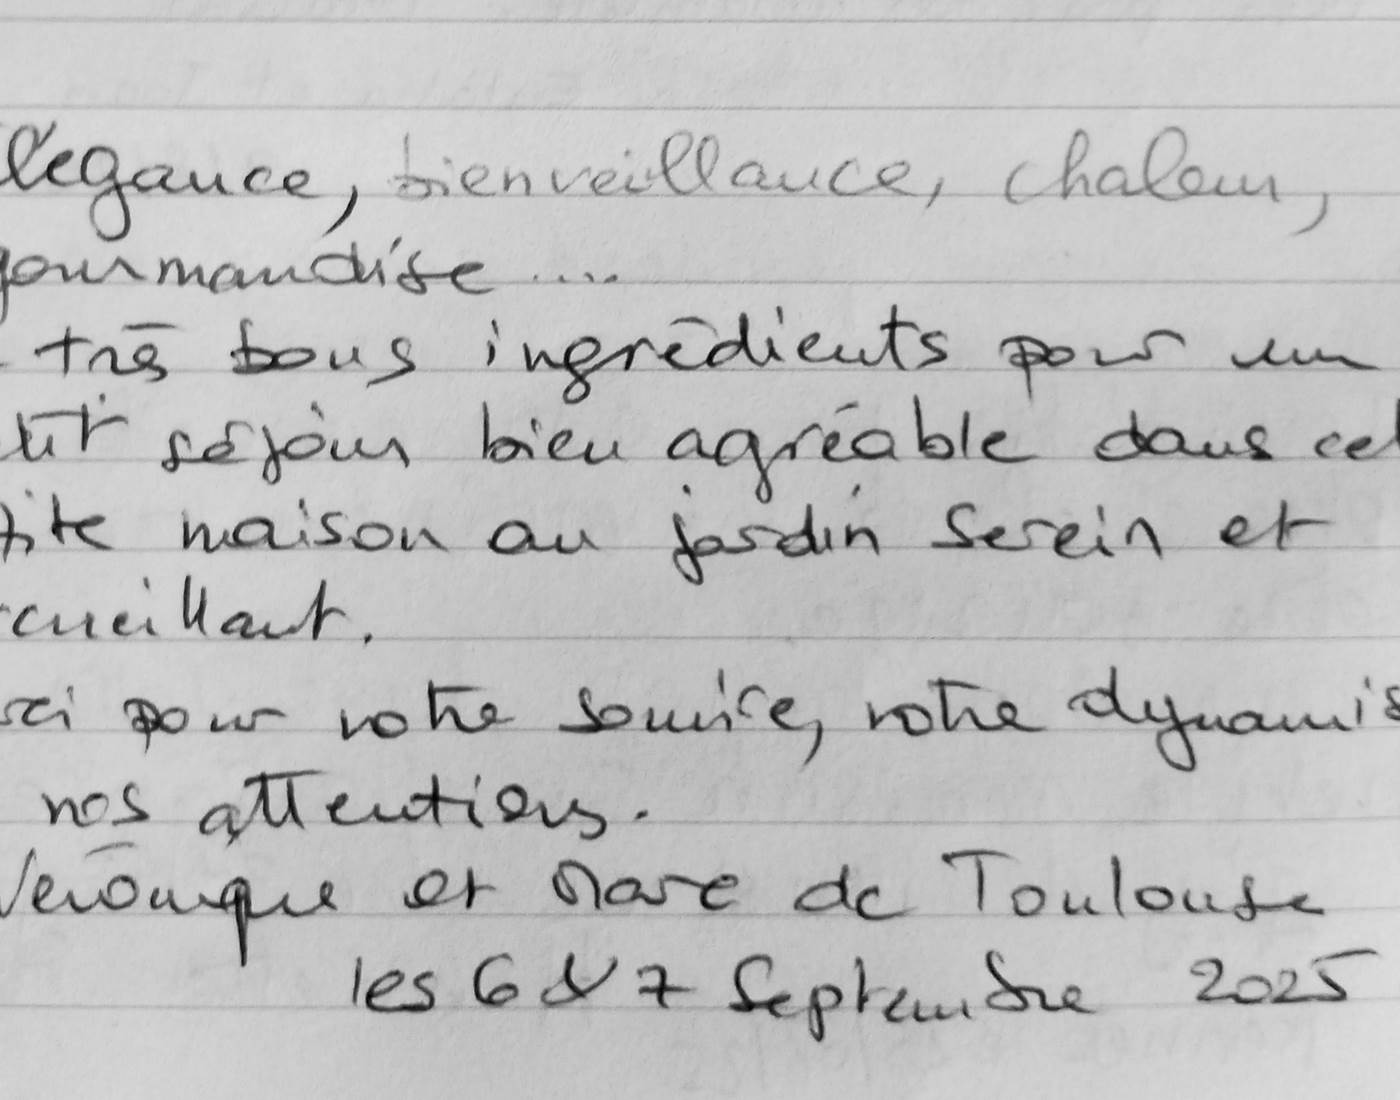 légance, bienveillance, chaleur,
gourmandise ....
très bons ingrédients pour un
séjour bien agréable dans cet
tite maison au jardin serein et
cueillant.
rci pour votre sourire, votre dynamis
nos attentions.
Véronique et Marc de Toulouse
les 6 & 7 Septembre 2025